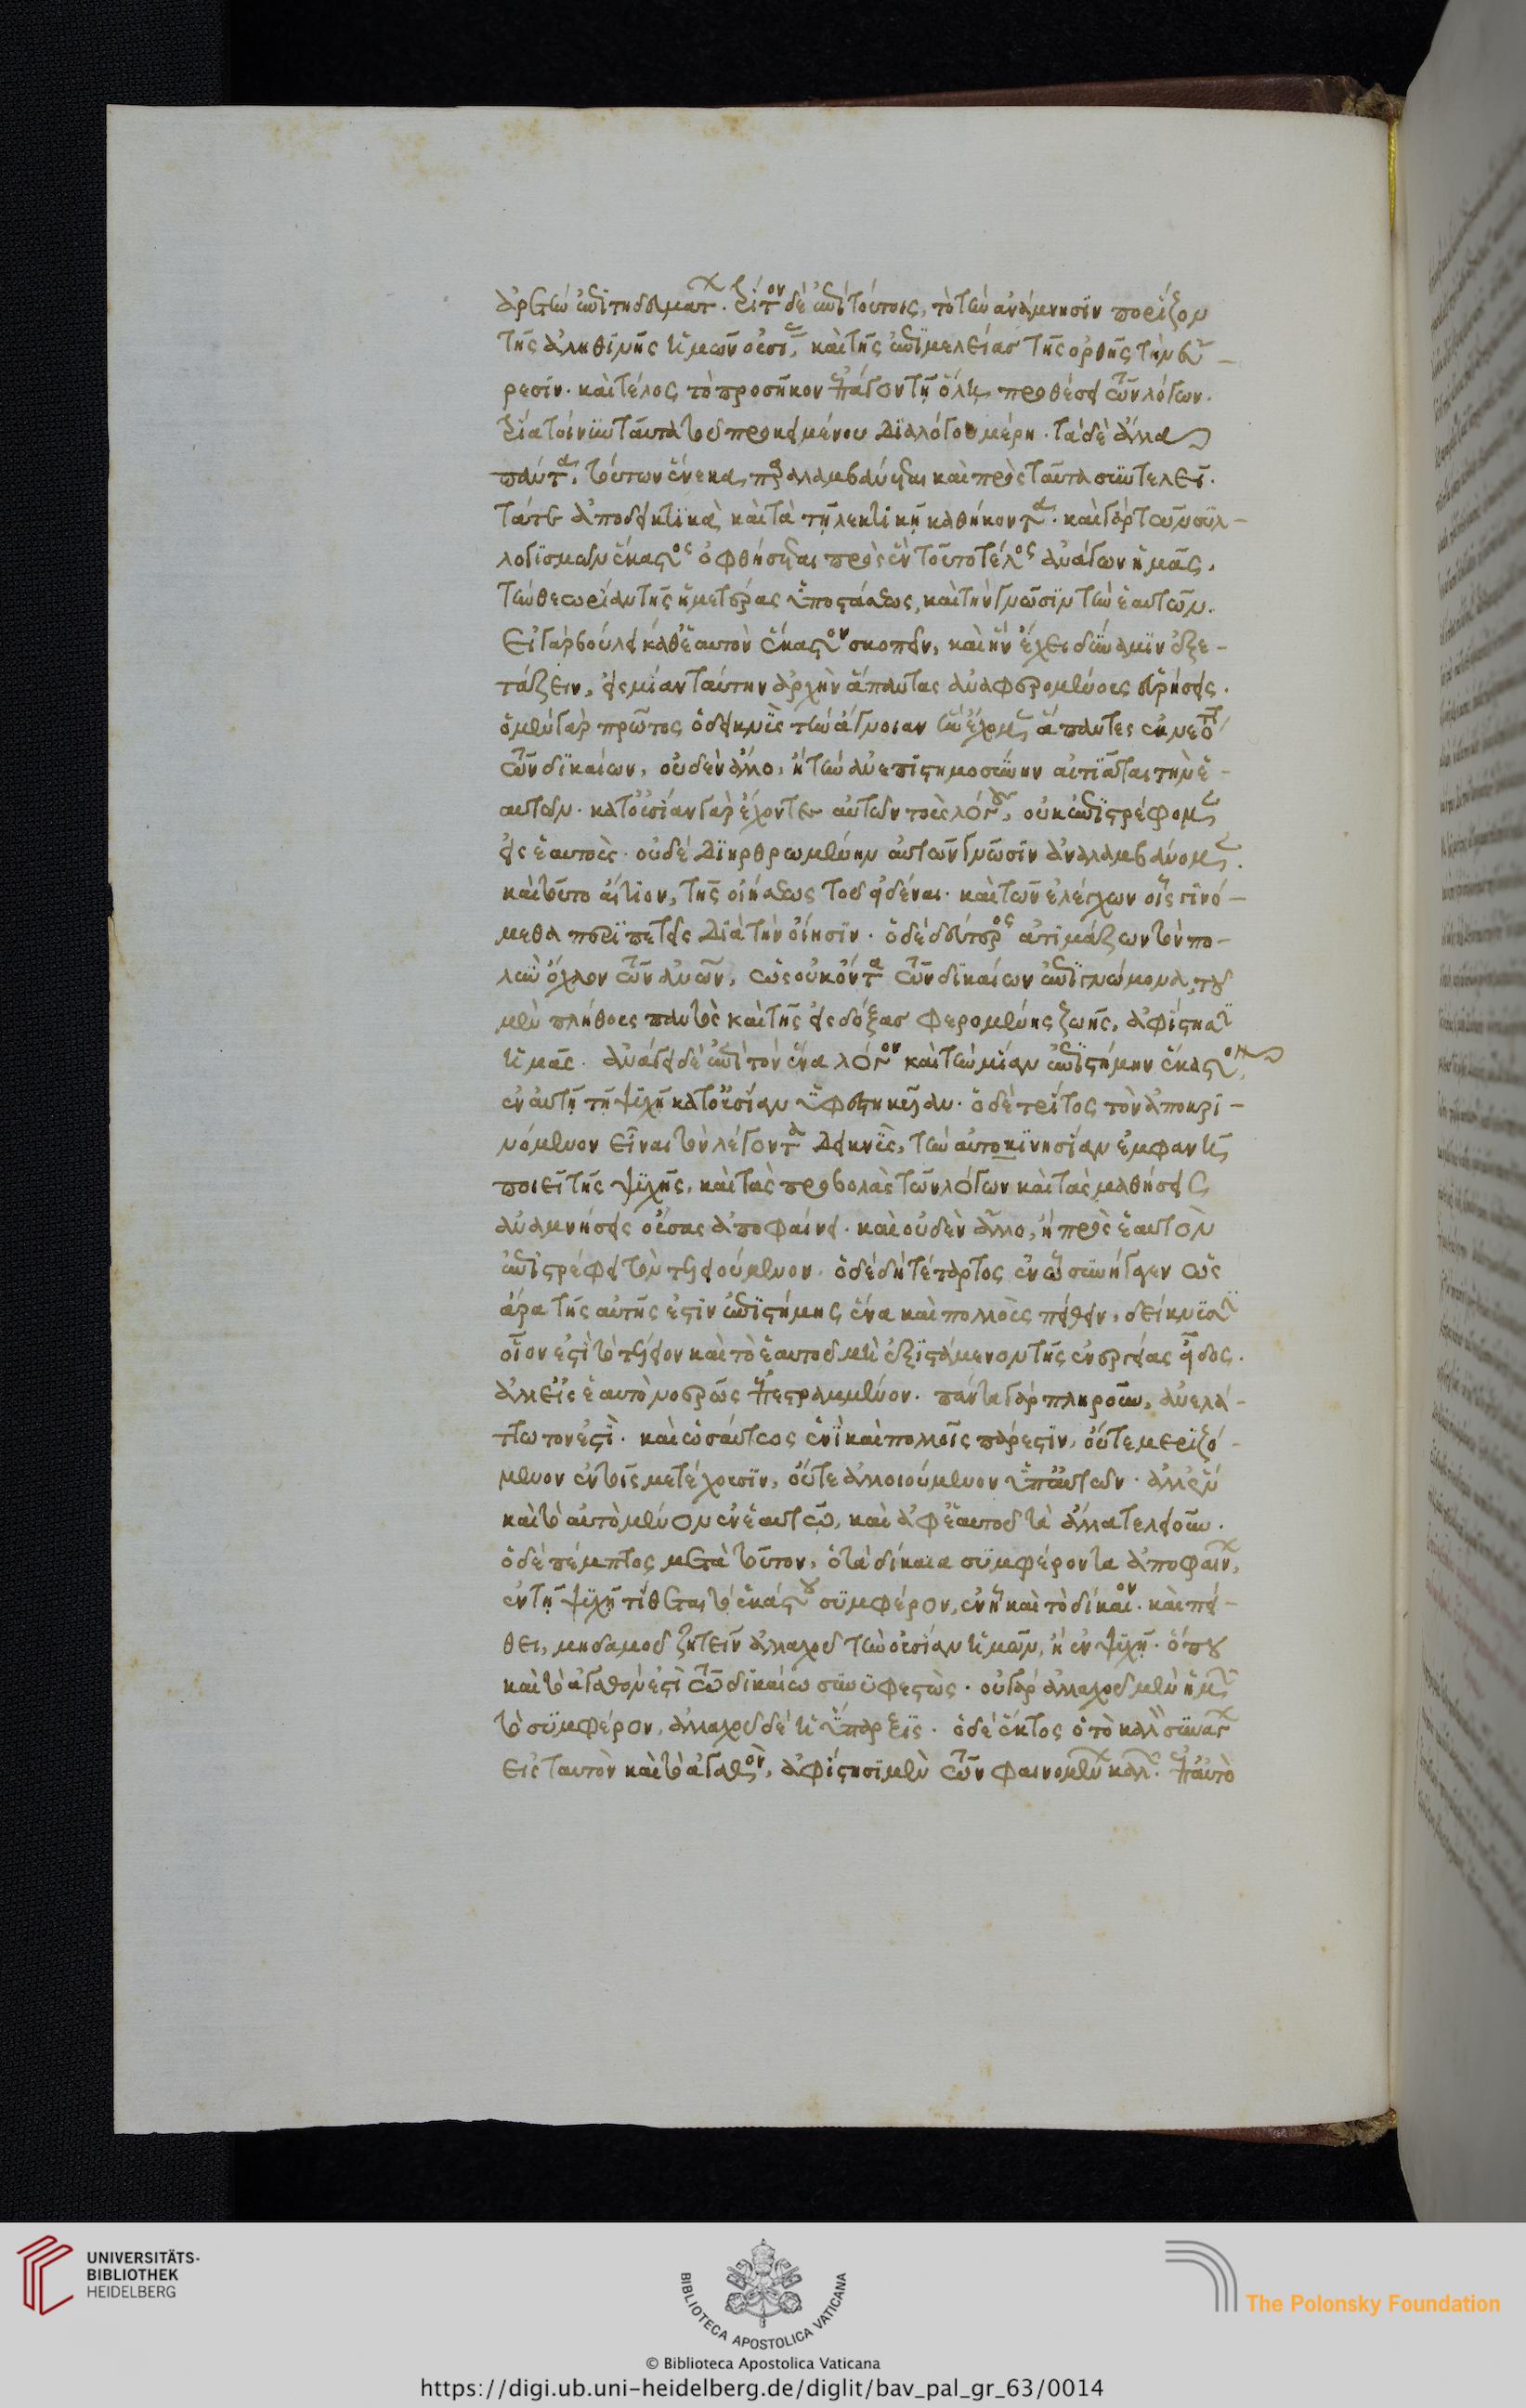 ἀρετὴν ἐπιτηδευμάτων. τρίτον δὲ ἐπὶ τούτοις, τὸ τὴν ἀνάμνησιν πορίζον
τῆς ἀληθινῆς ἡμῶν οὐσίας, καὶ τῆς ἐπιμελείας τῆς ὀρθῆς τὴν εὕ-
ρεσιν. καὶ τέλος τὸ προσῆκον ἐπάγον τῇ ὅλῃ προθέσει τῶν λόγων.
τρία τοίνυν ταῦτα τοῦ προκειμένου διαλόγου μέρη. τὰ δὲ ἄλλα
πάντα, τούτων ἕνεκα παραλαμβάνεσθαι καὶ πρὸς ταῦτα συντελεῖ.
τά τε ἀποδεικτικὰ καὶ τὰ τῇ λεκτικῇ καθήκοντα. καὶ γὰρ τῶν συλ-
λογισμῶν ἕκαστος ὀφθήσεται πρὸς ἓν τοῦτο τέλος ἀνάγων ἡμᾶς,
τὴν θεωρίαν τῆς ἡμετέρας ὑποστάσεως, καὶ τὴν γνῶσιν τὴν ἑαυτῶν.
Εἰ γὰρ βούλει καθ' ἑαυτὸν ἕκαστον σκοπεῖν, καὶ ἣν ἔχει δύναμιν ἐξε-
τάζειν, εἰς μίαν ταύτην ἀρχὴν ἅπαντας ἀναφερομένους εὑρήσεις.
ὁ μὲν γὰρ πρῶτος ὁ δεικνὺς τὴν ἄγνοιαν ἣν ἔχομεν ἅπαντες
τῶν δικαίων, οὐδὲν ἄλλο, ἢ τὴν ἀνεπιστημοσύνην αἰτιᾶται τὴν ἑ-
αυτῶν. κατ' οὐσίαν γὰρ ἔχοντες αὐτῶν τοὺς λόγους, οὐκ ἐπιστρέφομεν
εἰς ἑαυτούς. οὐδὲ διηρθρωμένην αὐτῶν γνῶσιν ἀναλαμβάνομεν.
καὶ τοῦτο αἴτιον, τῆς οἰήσεως τοῦ εἰδέναι. καὶ τῶν ἐλέγχων οἷς γινό-
μεθα περιπετεῖς διὰ τὴν οἴησιν. ὁ δὲ δεύτερος ἀτιμάζων τὸν πο-
λὺν ὄχλον τῶν ἀνθρώπων, ὡς οὐκ ὄντα τῶν δικαίων ἐπιγνώμονα, τοῦ
μὲν πλήθους παντὸς καὶ τῆς εἰς δόξας φερομένης ζωῆς, ἀφίστησιν
ἡμᾶς. ἀνάγει δὲ ἐπὶ τὸν ἕνα λόγον καὶ τὴν μίαν ἐπιστήμην ἑκάστου,
ἐν αὐτῇ τῇ ψυχῇ κατ' οὐσίαν ὑφεστηκυῖαν. ὁ δὲ τρίτος τὸν ἀποκρι-
νόμενον εἶναι τὸν λέγοντα δεικνύς, τὴν αὐτοκινησίαν ἐμφανῆ
ποιεῖ τῆς ψυχῆς, καὶ τὰς προβολὰς τῶν λόγων καὶ τὰς μαθήσεις
ἀναμνήσεις οὔσας ἀποφαίνει. καὶ οὐδὲν ἄλλο, ἢ πρὸς ἑαυτὸν
ἐπιστρέφει τὸν τελειούμενον. ὁ δὲ δὴ τέταρτος ἐν ᾧ συνῆγεν ὡς
ἄρα τῆς αὐτῆς ἐστιν ἐπιστήμης ἕνα καὶ πολλοὺς πείθειν, δείκνυσιν
οἷόν ἐστι τὸ τέλειον καὶ τὸ ἑαυτοῦ μὴ ἐξιστάμενον τῆς ἐνεργείας εἶδος.
ἀλλ' εἰς ἑαυτὸ νοερῶς ἐπεστραμμένον. πάντα γὰρ πληροῦν, ἀνελά-
ττωτόν ἐστι. καὶ ὡσαύτως ἑνὶ καὶ πολλοῖς πάρεστιν, οὔτε μεριζό-
μενον ἐν τοῖς μετέχουσιν, οὔτε ἀλλοιούμενον ὑπ' αὐτῶν. ἀλλ' ἓν
καὶ τὸ αὐτὸ μένον ἐν ἑαυτῷ, καὶ ἀφ' ἑαυτοῦ τὰ ἄλλα τελειοῦν.
ὁ δὲ πέμπτος μετὰ τοῦτον, ὁ τὰ δίκαια συμφέροντα ἀποφαίνων,
ἐν τῇ ψυχῇ τίθεται τὸ ἑκάστου συμφέρον, ἐν ᾗ καὶ τὸ δίκαιον. καὶ πεί-
θει, μηδαμοῦ ζητεῖν ἀλλαχοῦ τὴν οὐσίαν ἡμῶν, ἢ ἐν ψυχῇ. ὅπου
καὶ τὸ ἀγαθόν ἐστι τῷ δικαίῳ συνυφεστώς. οὐ γὰρ ἀλλαχοῦ μὲν ἡμῖν
τὸ συμφέρον, ἀλλαχοῦ δὲ ἡ ὕπαρξις. ὁ δὲ ἕκτος ὁ τὸ καλὸν συνάγων
εἰς ταυτὸν καὶ τὸ ἀγαθόν, ἀφίστησι μὲν τῶν φαινομένων καλῶν. ἐπ' αὐτὸ
UNIVERSITÄTS-
BIBLIOTHEK
HEIDELBERG
BIBLIOTECA APOSTOLICA VATICANA
The Polonsky Foundation
© Biblioteca Apostolica Vaticana
https://digi.ub.uni-heidelberg.de/diglit/bav_pal_gr_63/0014